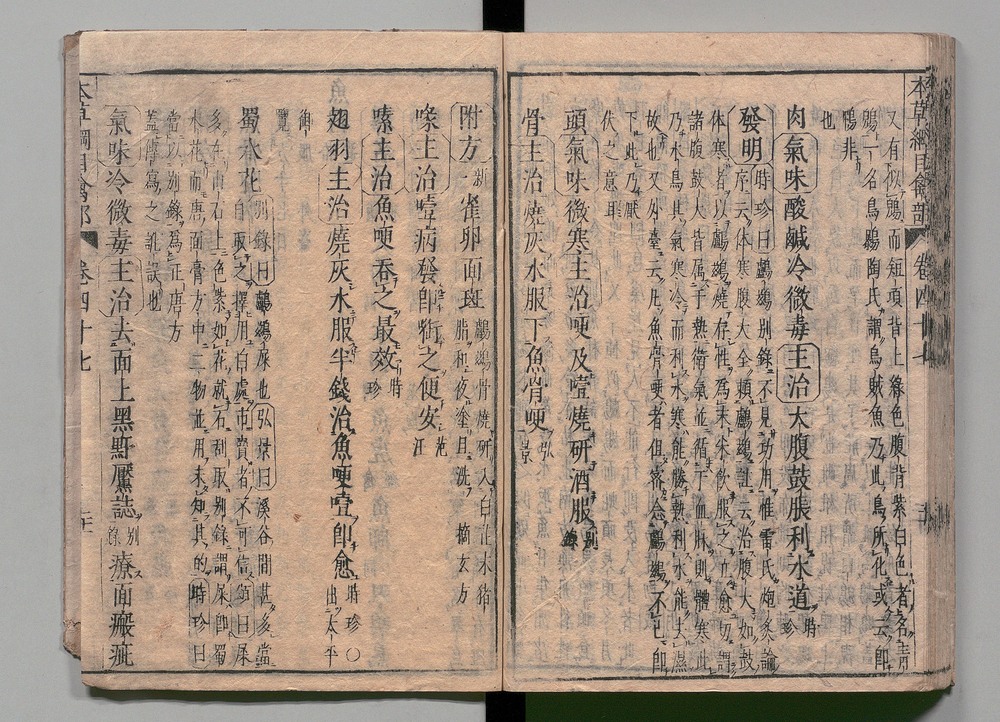 本草綱目禽部 卷四十七
又有似鶂而短項背上綠色腹背紫白色者名青
鶂一名烏鶂陶氏謂烏賊魚乃此鳥所化或云即
鶂非
也
肉氣味酸鹹冷微毒主治大腹鼓脹利水道時珍
發明時珍曰鸕鷀別錄不見功用惟雷氏炮炙論
序云体寒腹大全賴鸕鷀註云治腹大如鼓
体寒者以鸕鷀燒存性為末米飲服之立愈切謂
諸腹鼓大皆屬于熱衛氣並循于血脉則體寒此
乃水鳥其氣寒冷而利水寒能勝熱利水能去濕
故也又外臺云凡魚骨哽者但密念鸕鷀不已即
下此乃厭
伏之意耳
頭氣味微寒主治哽及噎燒研酒服別錄
骨主治燒灰水服下魚骨哽弘景
附方新一雀卵面斑鸕鷀骨燒研入白芷末猪
脂和夜塗旦洗 摘玄方
喙主治噎病發即銜之便安范汪
嗉主治魚哽吞之最效時珍
翅羽主治燒灰水服半錢治魚哽噎即愈時珍○
出太平
御
覽
蜀水花別錄曰鸕鷀屎也弘景曰溪谷間甚多當
自取之擇用白處市賣者不可信頌曰屎
多在山石上色紫如花就石刮取別錄謂屎即蜀
水花而唐面膏方中二物並用未知其的時珍曰
當以別錄為正唐方
蓋傳寫之訛誤也
氣味冷微毒主治去面上黑䵟黶誌別錄療面瘢疵
本草綱目禽部 卷四十七